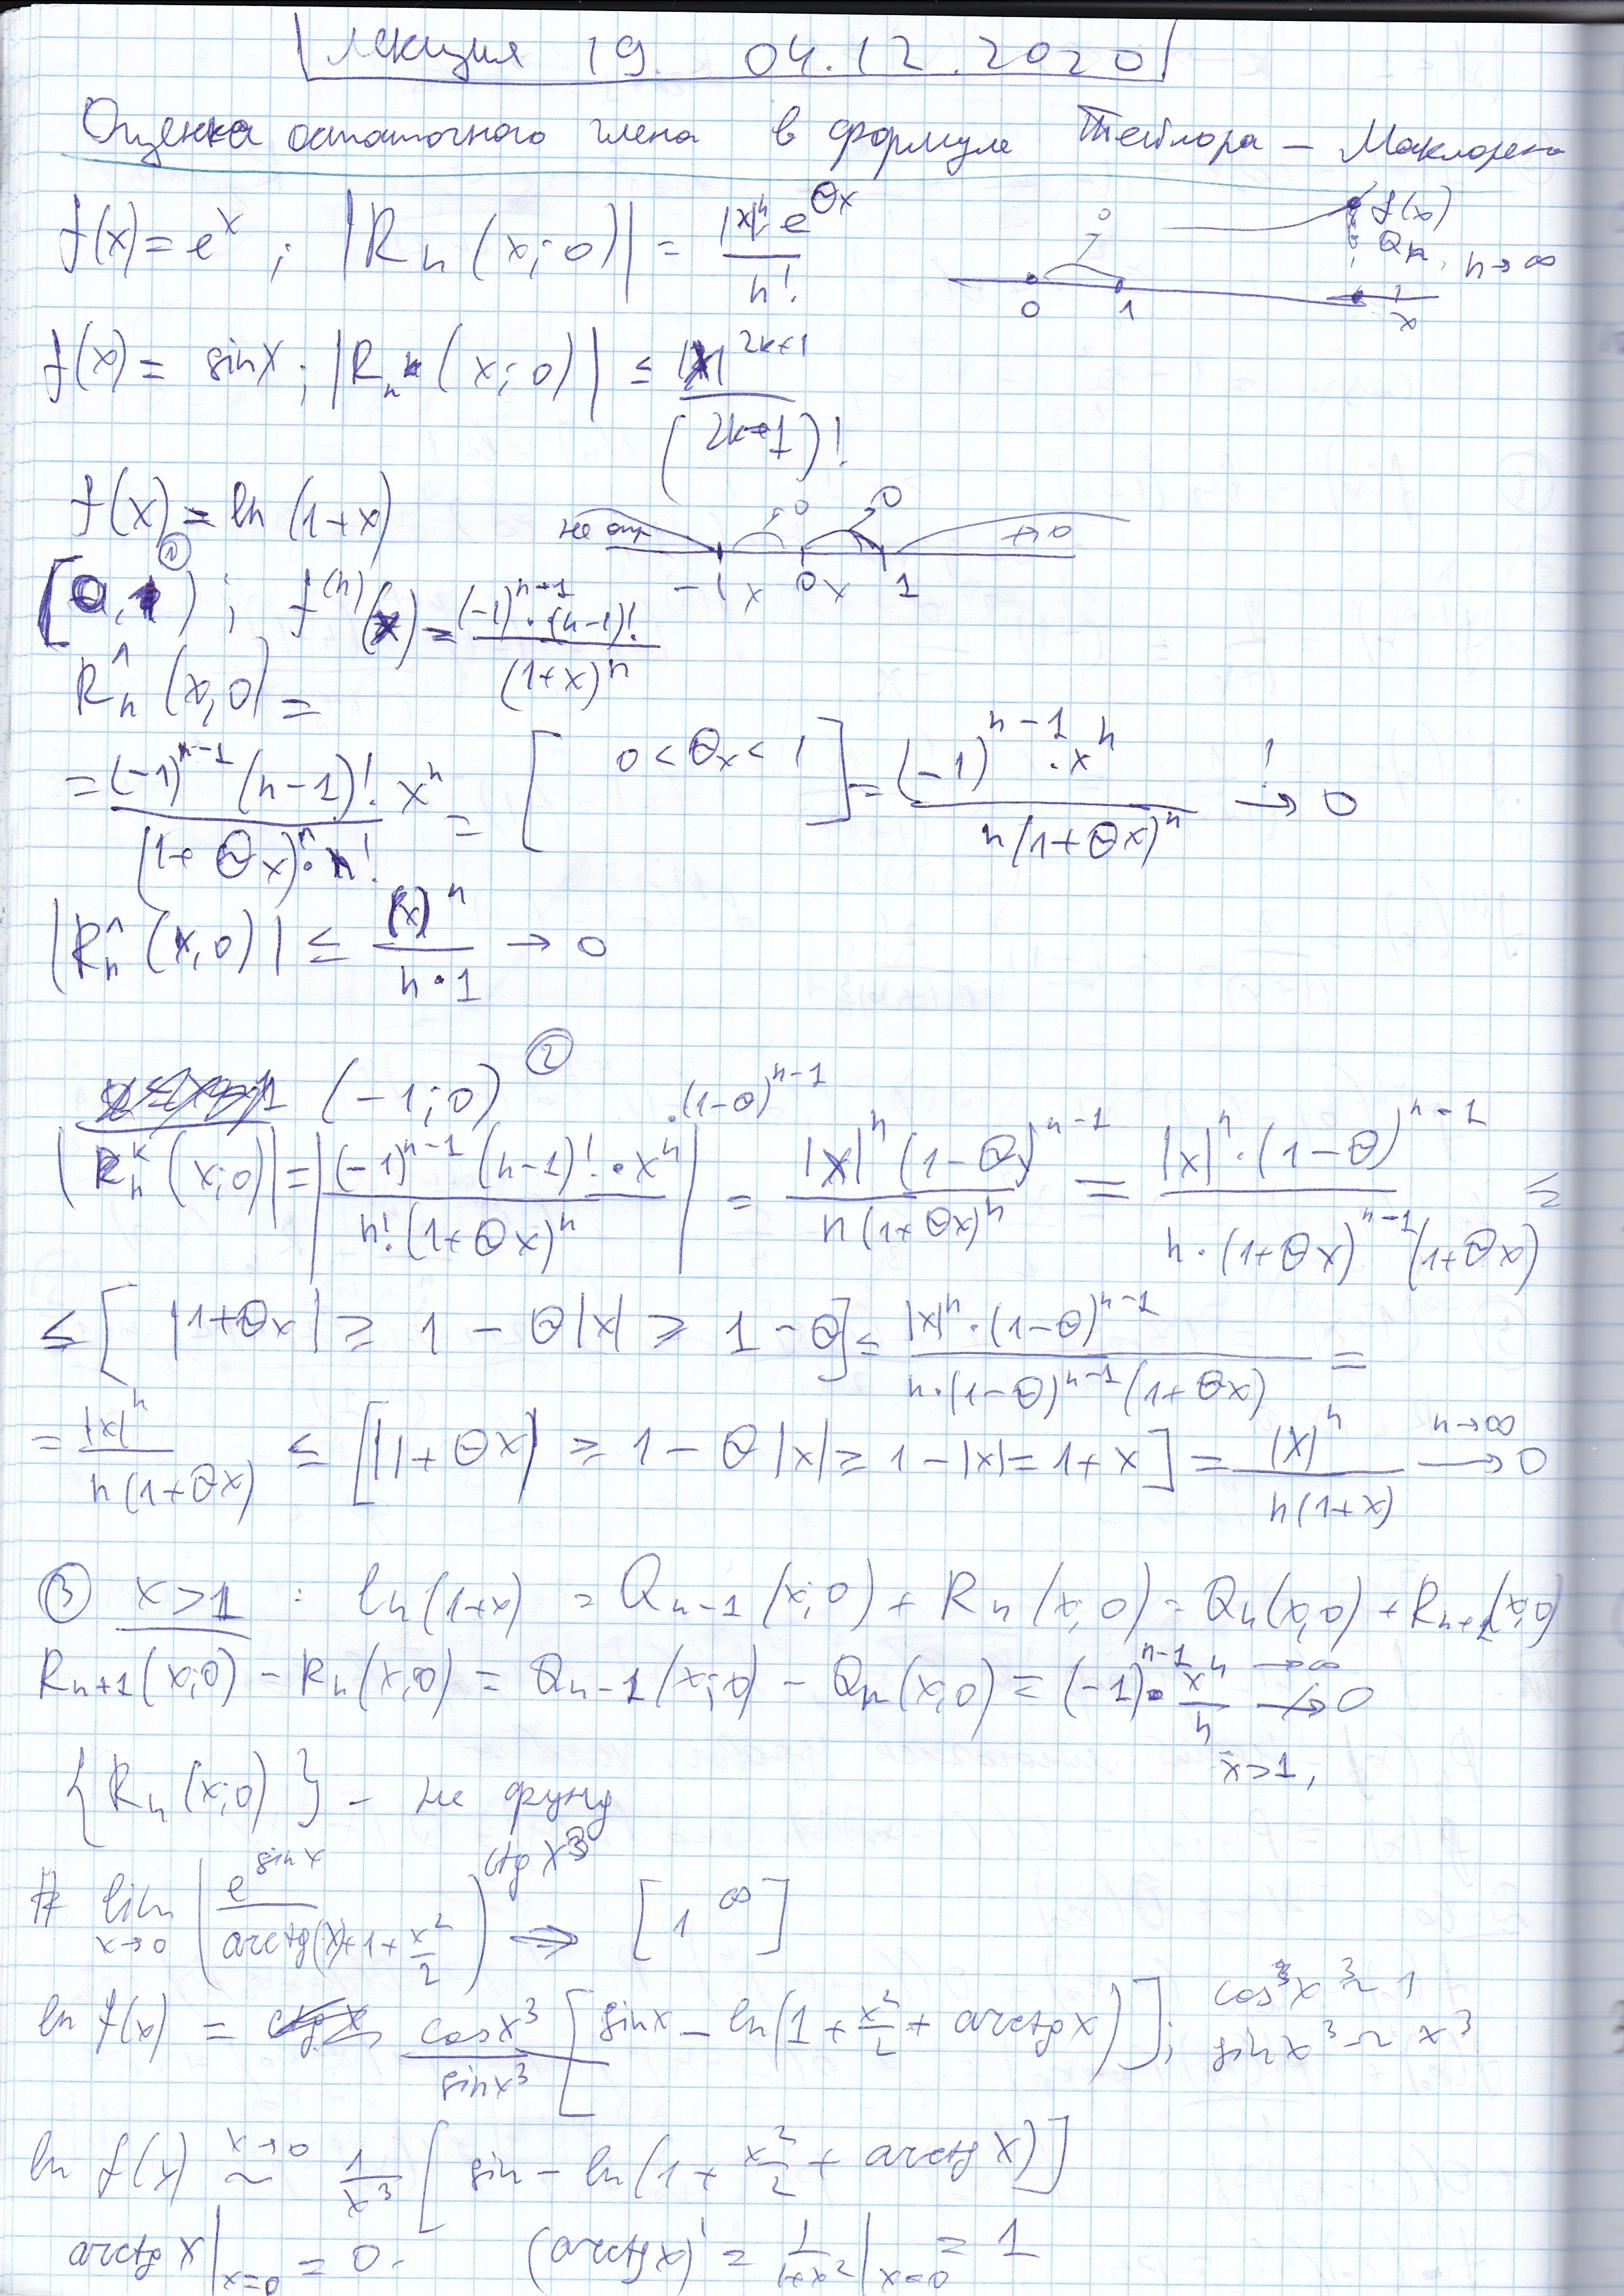 Лекция 19. 04.12.2020
Оценка остаточного члена в формуле Тейлора – Маклорена
f(x) = e^x ; |R_n (x; 0)| = |x|^n · e^{Θx} / n!
f(x) Q_n, n→∞
0 1 x
f(x) = sin x ; |R_n (x; 0)| ≤ |x|^{2k+1} / (2k+1)!
f(x) = ln (1+x)
-1 x 0 x 1 ↛0
[0, 1) ① ; f^{(n)}(x) = (-1)^{n-1} · (n-1)! / (1+x)^n
R_n^Λ (x, 0) =
= (-1)^{n-1} (n-1)! · x^n / (1+Θx)^n · n! = [ 0 < Θ_x < 1 ] = (-1)^{n-1} · x^n / n(1+Θx)^n → 0 !
|R_n^Λ (x, 0)| ≤ (x)^n / n·1 → 0
(-1; 0) ②
|R_n^k (x; 0)| = | (-1)^{n-1} (n-1)! · x^n · (1-Θ)^{n-1} / n! · (1+Θx)^n | = |x|^n (1-Θ)^{n-1} / n(1+Θx)^n = |x|^n · (1-Θ)^{n-1} / n · (1+Θx)^{n-1} (1+Θx) ≤
≤ [ |1+Θx| ≥ 1 - Θ|x| ≥ 1 - Θ ] ≤ |x|^n · (1-Θ)^{n-1} / n · (1-Θ)^{n-1} (1+Θx) =
= |x|^n / n(1+Θx) ≤ [ |1+Θx| ≥ 1 - Θ|x| ≥ 1 - |x| = 1+x ] = |x|^n / n(1+x) → 0 n→∞
③ x > 1 : ln(1+x) = Q_{n-1} (x; 0) + R_n (x, 0) = Q_n (x, 0) + R_{n+1} (x; 0)
R_{n+1} (x; 0) - R_n (x; 0) = Q_{n-1} (x; 0) - Q_n (x, 0) = (-1)^{n-1} · x^n / n →∞ ↛ 0
x > 1,
{R_n (x; 0)} – не фунд
# lim x→0 ( e^{sin x} / arctg(x) + 1 + x²/2 )^{ctg x³} ⇒ [1^∞]
ln f(x) = cos x³ / sin x³ [ sin x - ln(1 + x²/2 + arctg x) ] ; cos³ x³ ~ 1
sin x³ ~ x³
ln f(x) ~ x→0 1/x³ [ sin - ln(1 + x²/2 + arctg x) ]
arctg x |_{x=0} = 0. (arctg x)' = 1 / 1+x² |_{x=0} = 1